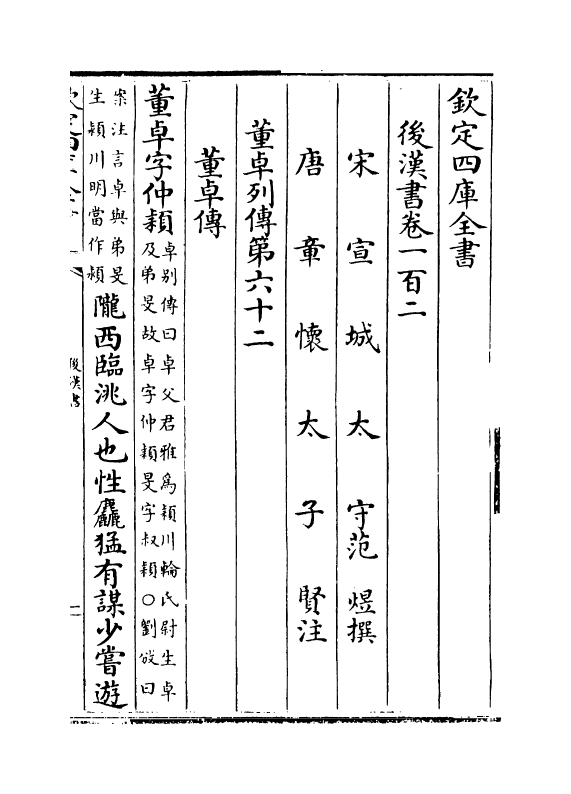 欽定四庫全書
後漢書卷一百二
宋宣城太守范煜撰
唐章懷太子賢注
董卓列傳第六十二
董卓傳
董卓字仲頴卓别傳曰卓父君雅爲頴川輪氏尉生卓及弟旻故卓字仲頴旻字叔頴○劉攽曰
案注言卓與弟旻生頴川明當作潁隴西臨洮人也性麤猛有謀少嘗遊
後漢書